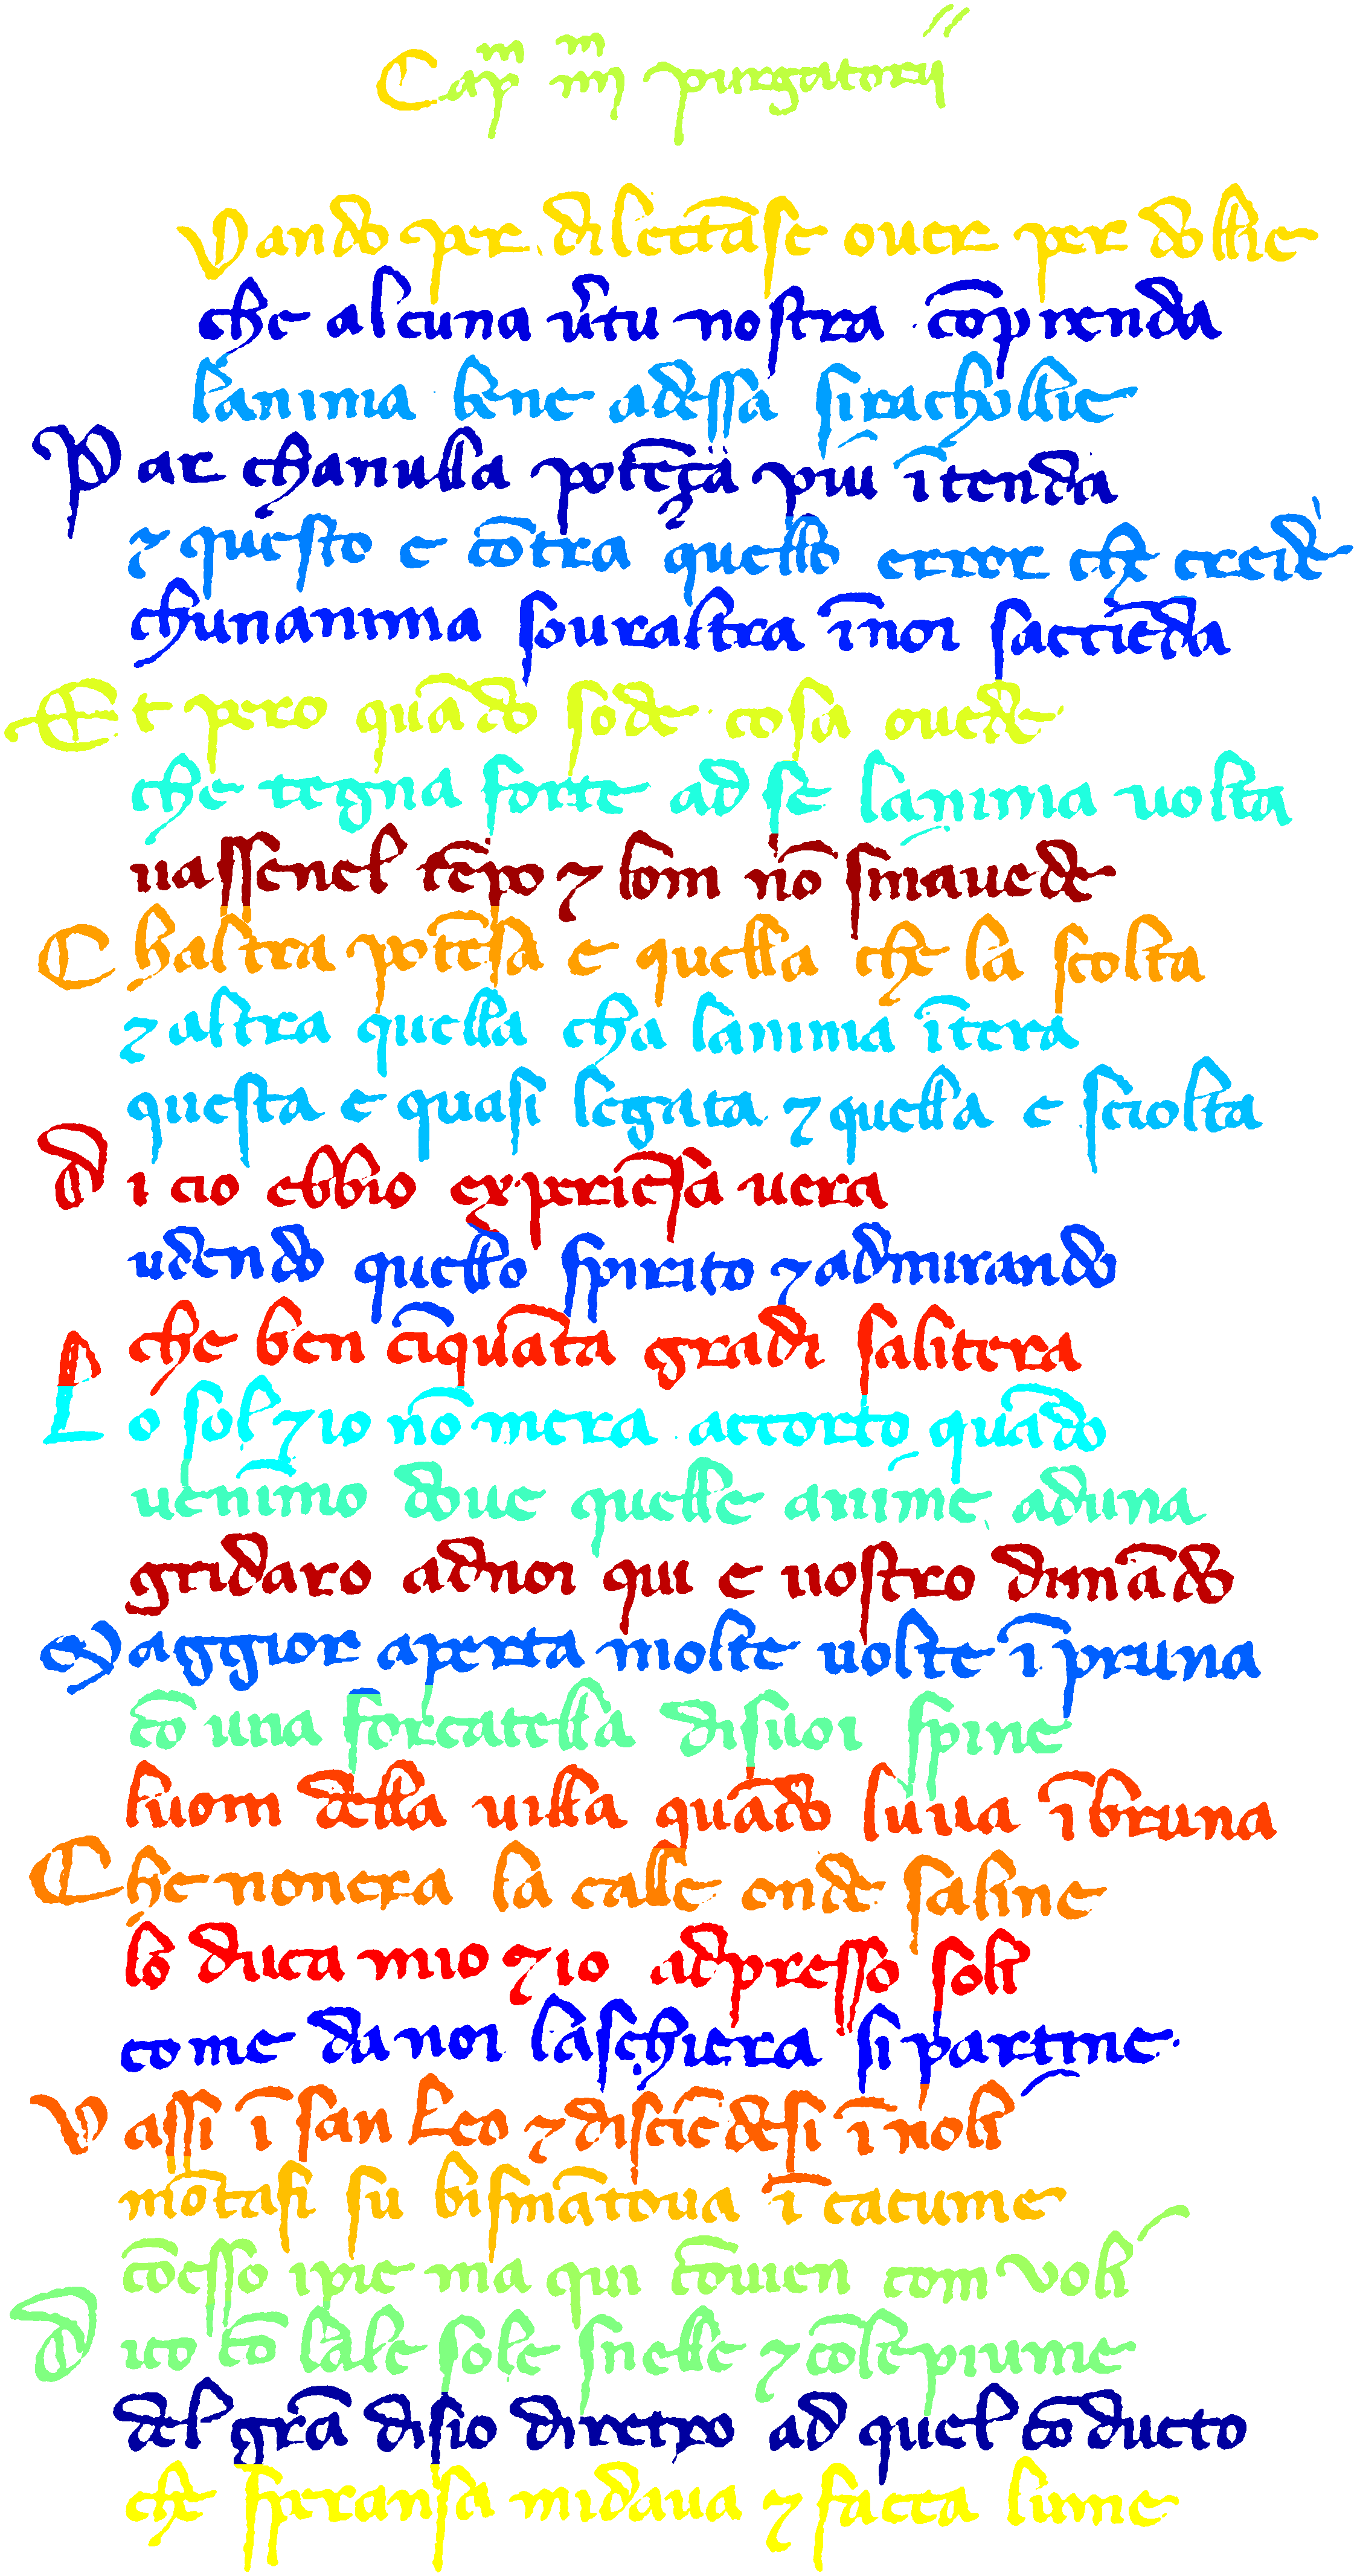 Cap̃ m̃ iiij m̃ purgatorij
Vando per dilectãse ouer per dollie
che alcuna ũtu nostra cõprenda
lanima bene adessa sirachollie
Par chanulla potẽça piu ĩtenda
⁊ questo e cõtra quello error che crede
chunanima souraltra ĩnoi saccẽda
Et pero quãdo sode cosa ouede
che tegna forte ad se lanima uolta
uassenel tẽpo ⁊ lom nõ smauede
Chaltra potẽsa e quella che la scolta
⁊ altra quella cha lanima ĩtera
questa e quasi legata ⁊ quella e sciolta
di cio ebbio experiẽsa uera
udendo quello spirito ⁊ admirando
che ben cĩquãta gradi salitera
Lo sol ⁊ io nõ mera accorto quãdo
uenĩmo doue quelle anime aduna
gridaro adnoi qui e uostro dimãdo
Maggior aperta molte uolte ĩpruna
cõ una forcatella disuoi spine
luom della uilla quãdo luua ĩbruna
Che nonera la calle onde saline
lo duca mio ⁊ io adpresso soli
come danoi laschiera si partine
Vassi ĩ san Leo ⁊ discẽdesi ĩ noli
mõtasi su bismãtoua ĩ cacume
cõesso ipie ma qui cõuien com uoli
dico cõ lale sole snelle ⁊ cõle piume
del grã disio diretro ad quel cõducto
che speransa midaua ⁊ facca lume